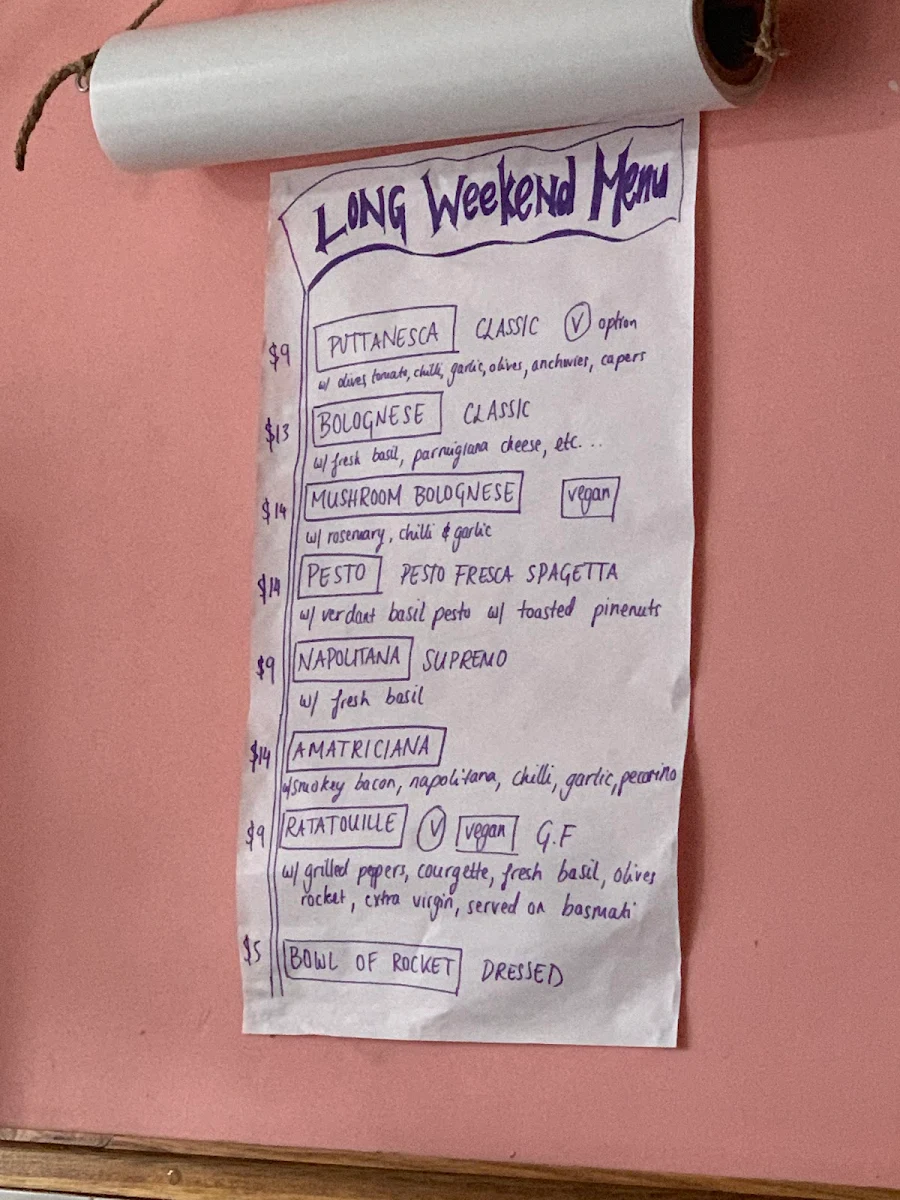 LONG Weekend Menu
$9 PUTTANESCA CLASSIC V option
w/ olives, tomato, chilli, garlic, olives, anchovies, capers
$13 BOLOGNESE CLASSIC
w/ fresh basil, parmigiana cheese, etc...
$14 MUSHROOM BOLOGNESE vegan
w/ rosemary, chilli & garlic
$14 PESTO PESTO FRESCA SPAGETTA
w/ verdant basil pesto w/ toasted pinenuts
$9 NAPOLITANA SUPREMO
w/ fresh basil
$14 AMATRICIANA
w/ smokey bacon, napolitana, chilli, garlic, pecorino
$9 RATATOUILLE V vegan G.F
w/ grilled peppers, courgette, fresh basil, olives
rocket, extra virgin, served on basmati
$5 BOWL OF ROCKET DRESSED